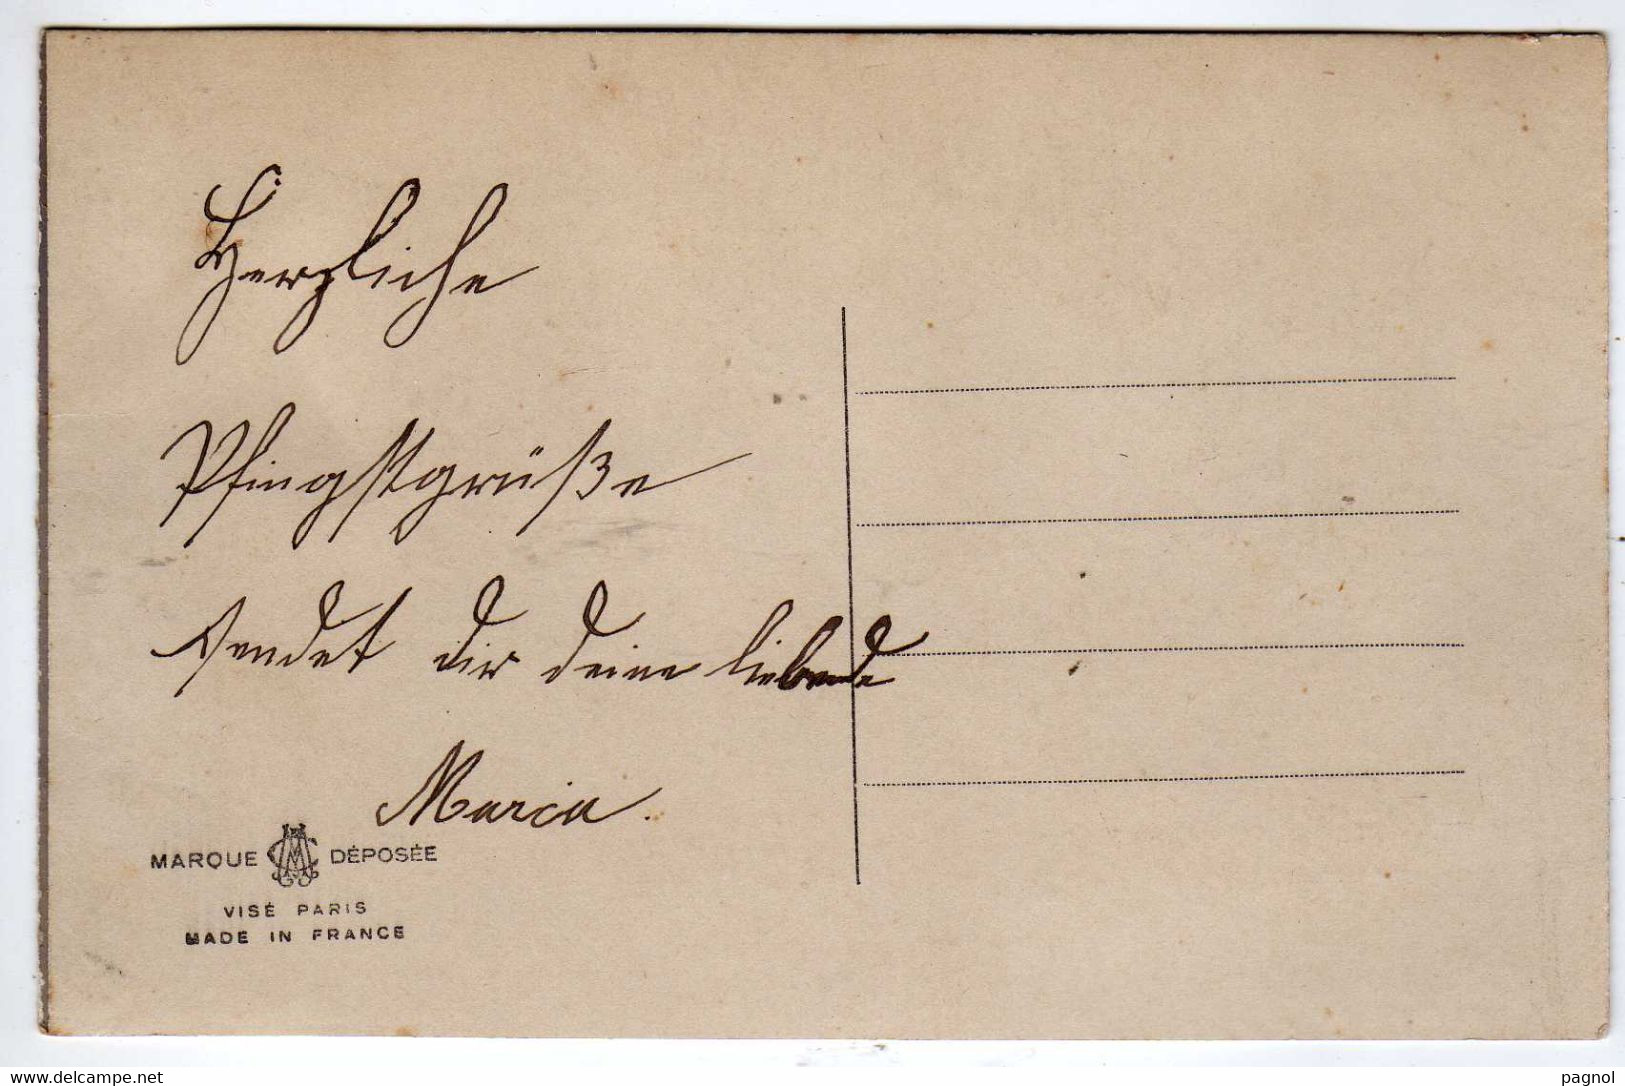 Herzliche
Pfingstgrüße
sendet dir deine liebende
Maria.
MARQUE DÉPOSÉE
VISÉ PARIS
MADE IN FRANCE
www.delcampe.net
pagnol